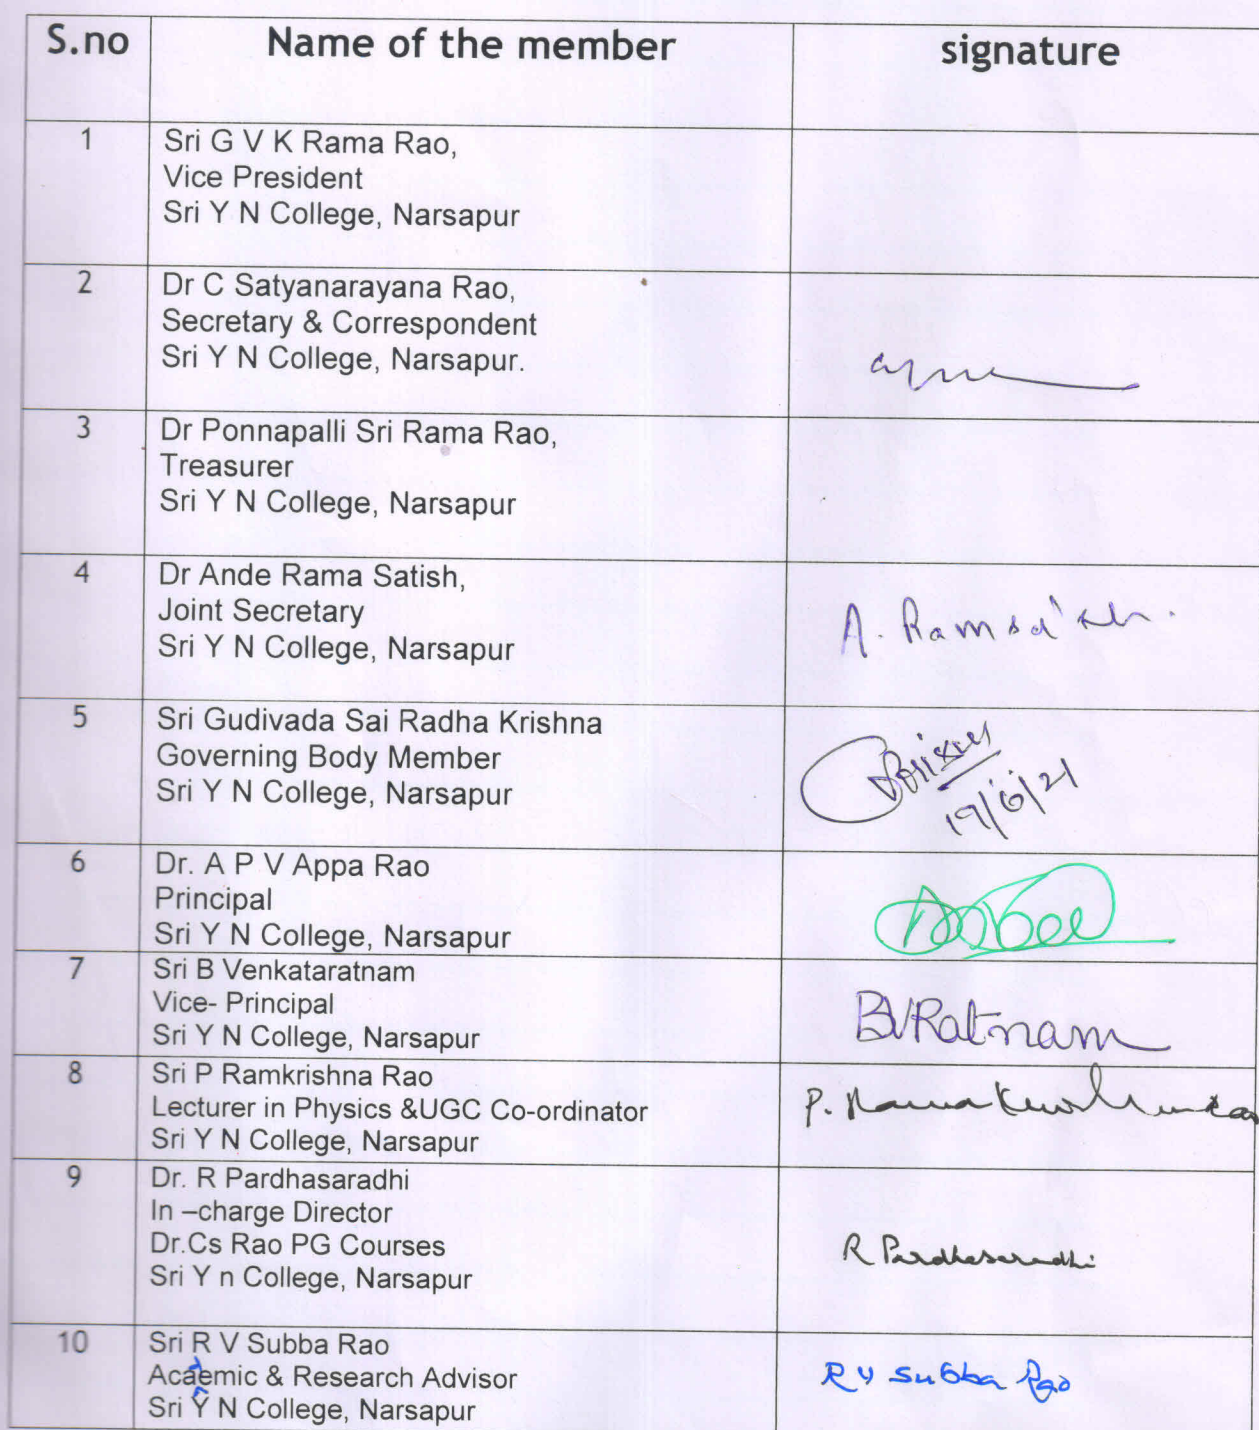 S.no Name of the member signature
1 Sri G V K Rama Rao,
Vice President
Sri Y N College, Narsapur
2 Dr C Satyanarayana Rao,
Secretary & Correspondent
Sri Y N College, Narsapur.
3 Dr Ponnapalli Sri Rama Rao,
Treasurer
Sri Y N College, Narsapur
4 Dr Ande Rama Satish,
Joint Secretary
Sri Y N College, Narsapur
A.
5 Sri Gudivada Sai Radha Krishna
Governing Body Member
Sri Y N College, Narsapur
19/6/21
6 Dr. A P V Appa Rao
Principal
Sri Y N College, Narsapur
7 Sri B Venkataratnam
Vice- Principal
Sri Y N College, Narsapur
BVRatnam
8 Sri P Ramkrishna Rao
Lecturer in Physics &UGC Co-ordinator
Sri Y N College, Narsapur
P.
9 Dr. R Pardhasaradhi
In –charge Director
Dr.Cs Rao PG Courses
Sri Y n College, Narsapur
R Pardhasaradhi
10 Sri R V Subba Rao
Academic & Research Advisor
Sri Y N College, Narsapur
R V Subba Rao